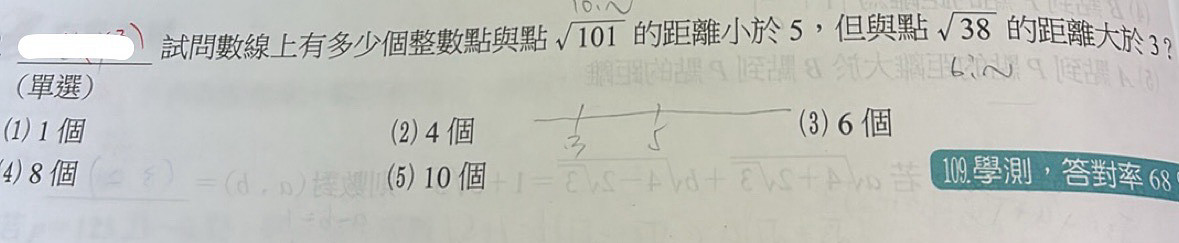 10.~
試問數線上有多少個整數點與點 √101 的距離小於 5，但與點 √38 的距離大於 3？
6.~
(單選)
(1) 1 個 (2) 4 個 (3) 6 個
3 5
(4) 8 個 (5) 10 個
109.學測，答對率 68